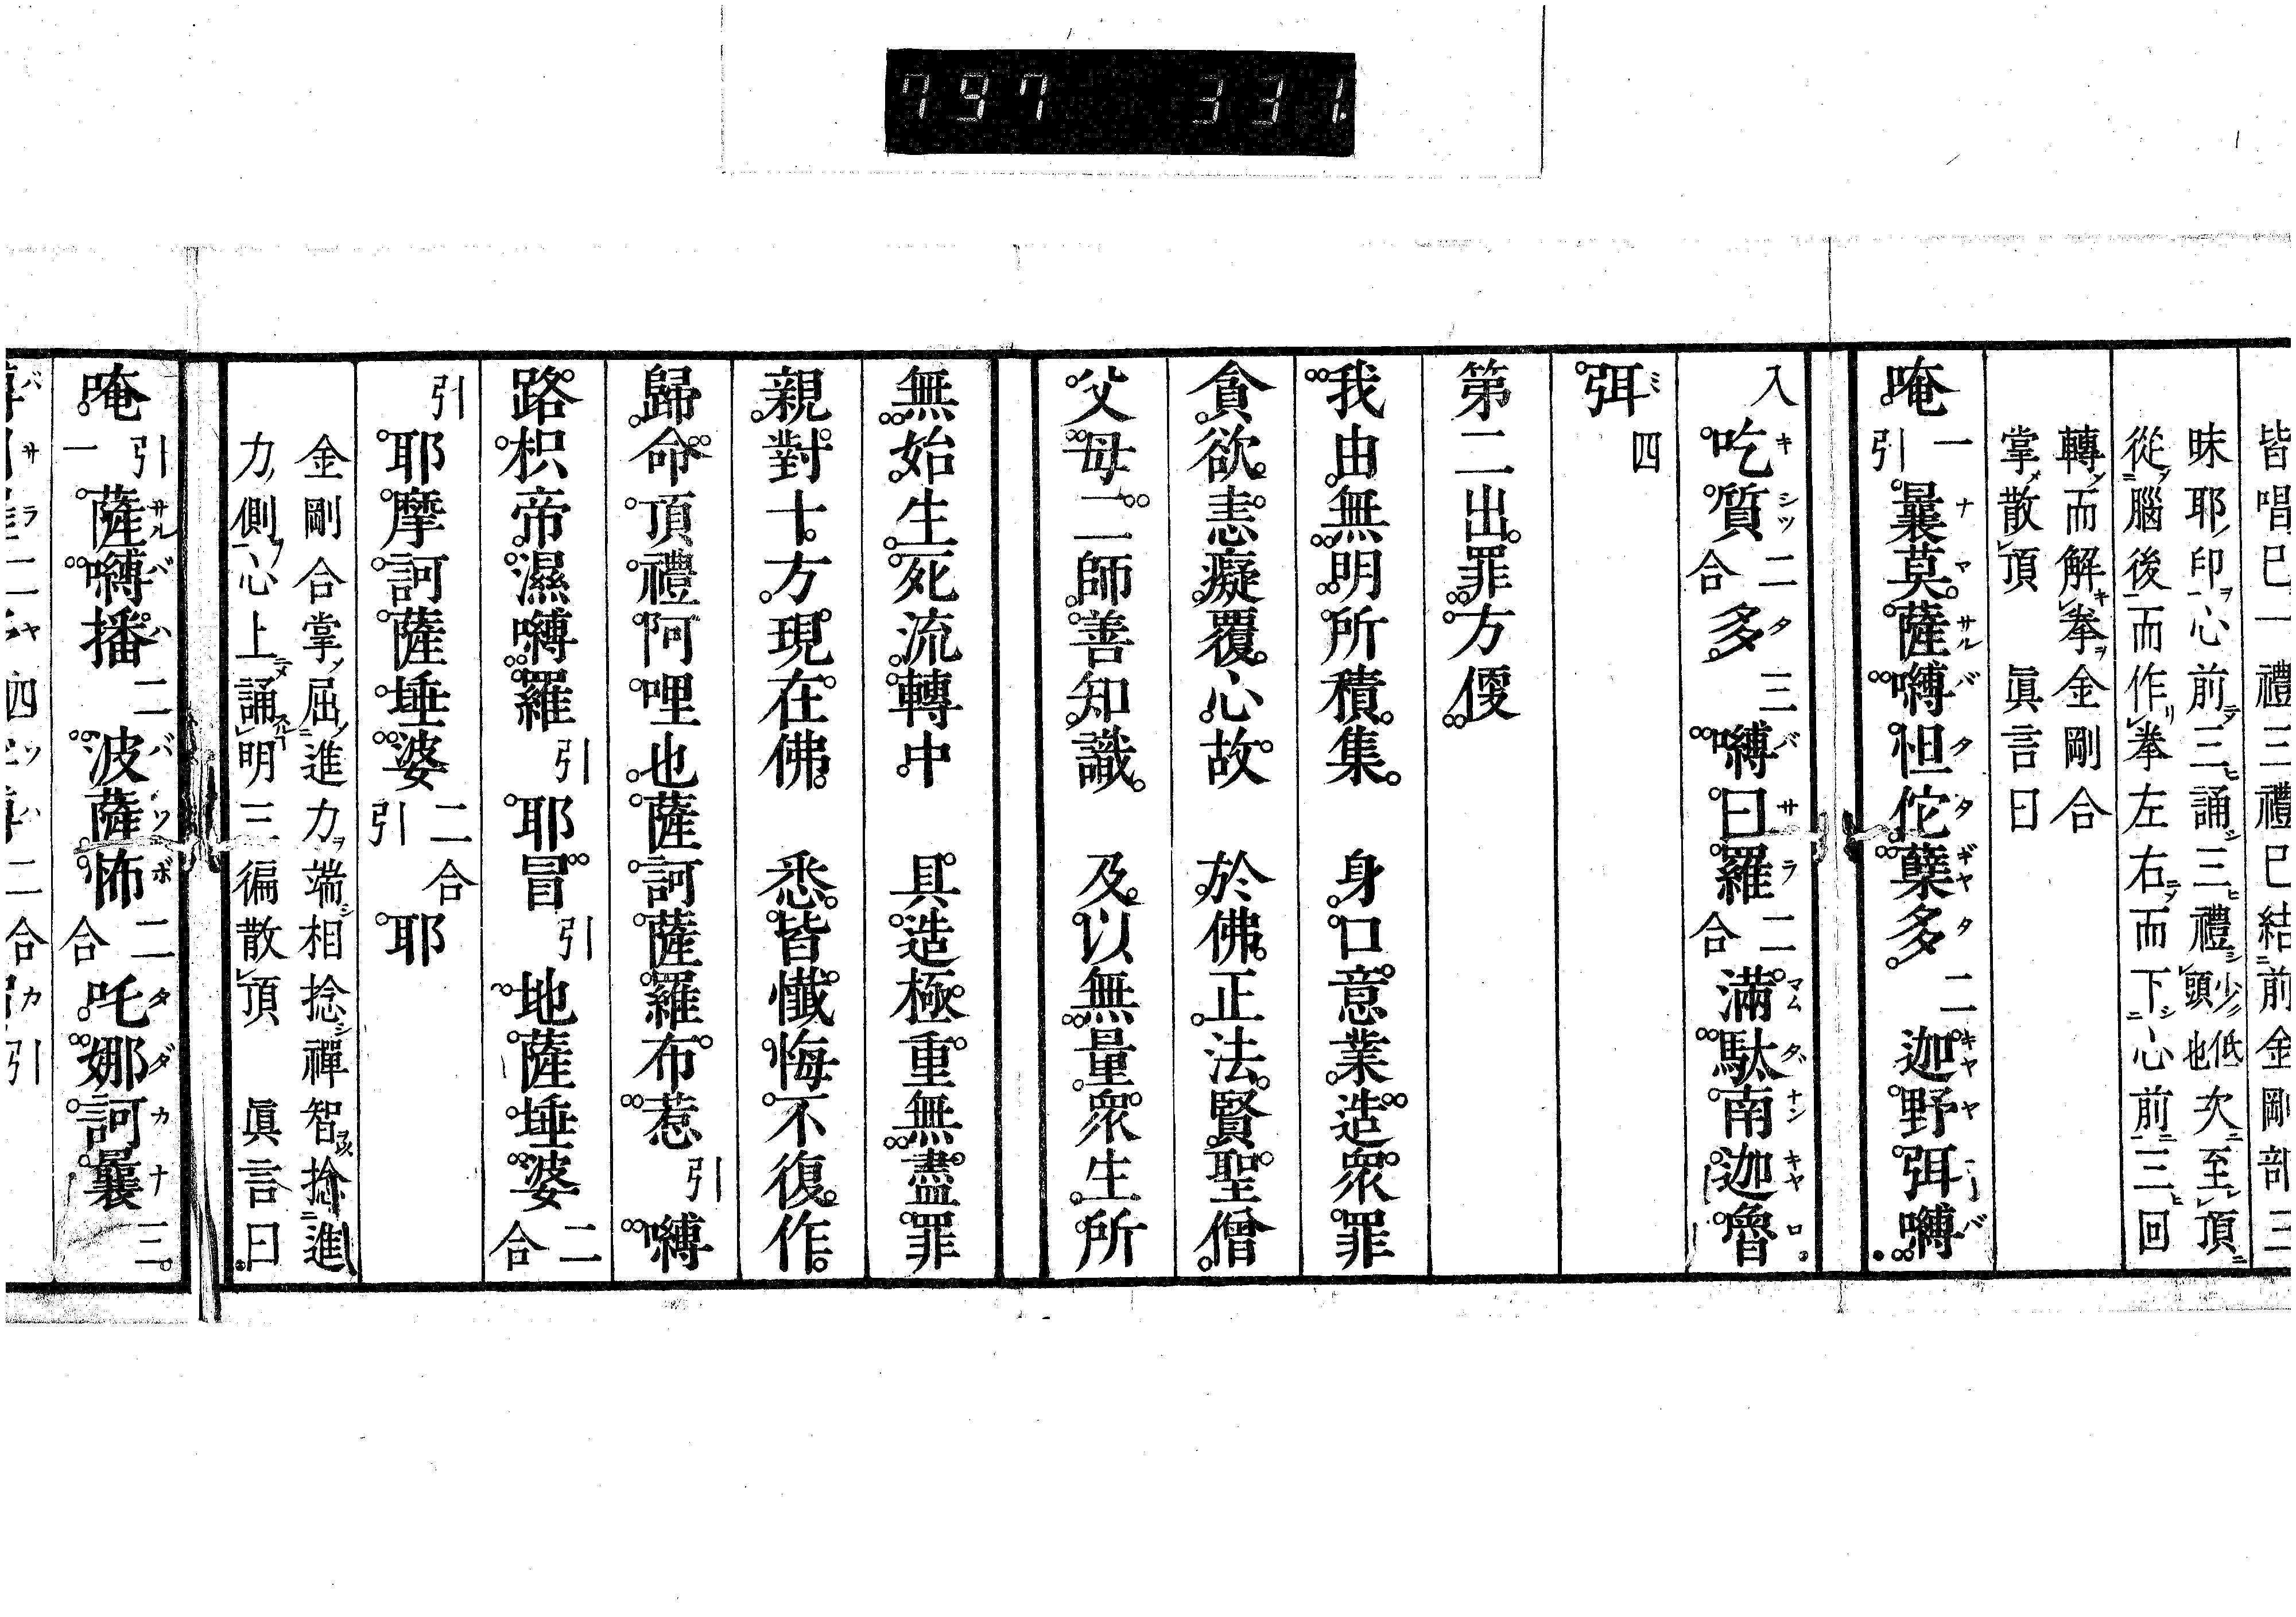 797 331
皆唱已一禮三禮已結前金剛部三
昧耶印心前三誦三禮少低頭也次至頂
從腦後而作拳左右而下心前三回
轉而解拳金剛合
掌散頂 眞言曰
唵引一曩莫薩嚩怛佗蘗多二迦野弭嚩
入吃質二合多三嚩曰羅二合滿馱南迦嚕
弭四
第二出罪方便
我由無明所積集 身口意業造衆罪
貪欲恚癡覆心故 於佛正法賢聖僧
父母二師善知識 及以無量衆生所
無始生死流轉中 具造極重無盡罪
親對十方現在佛 悉皆懺悔不復作
歸命頂禮阿哩也薩訶薩羅布惹引嚩
路枳帝濕嚩羅引耶冒引地薩埵婆二合
引耶摩訶薩埵婆二合引耶
金剛合掌屈進力端相捻禪智捻進
力側心上誦明三徧散頂 眞言曰
唵引一薩嚩播二波薩怖二合吒娜訶曩三